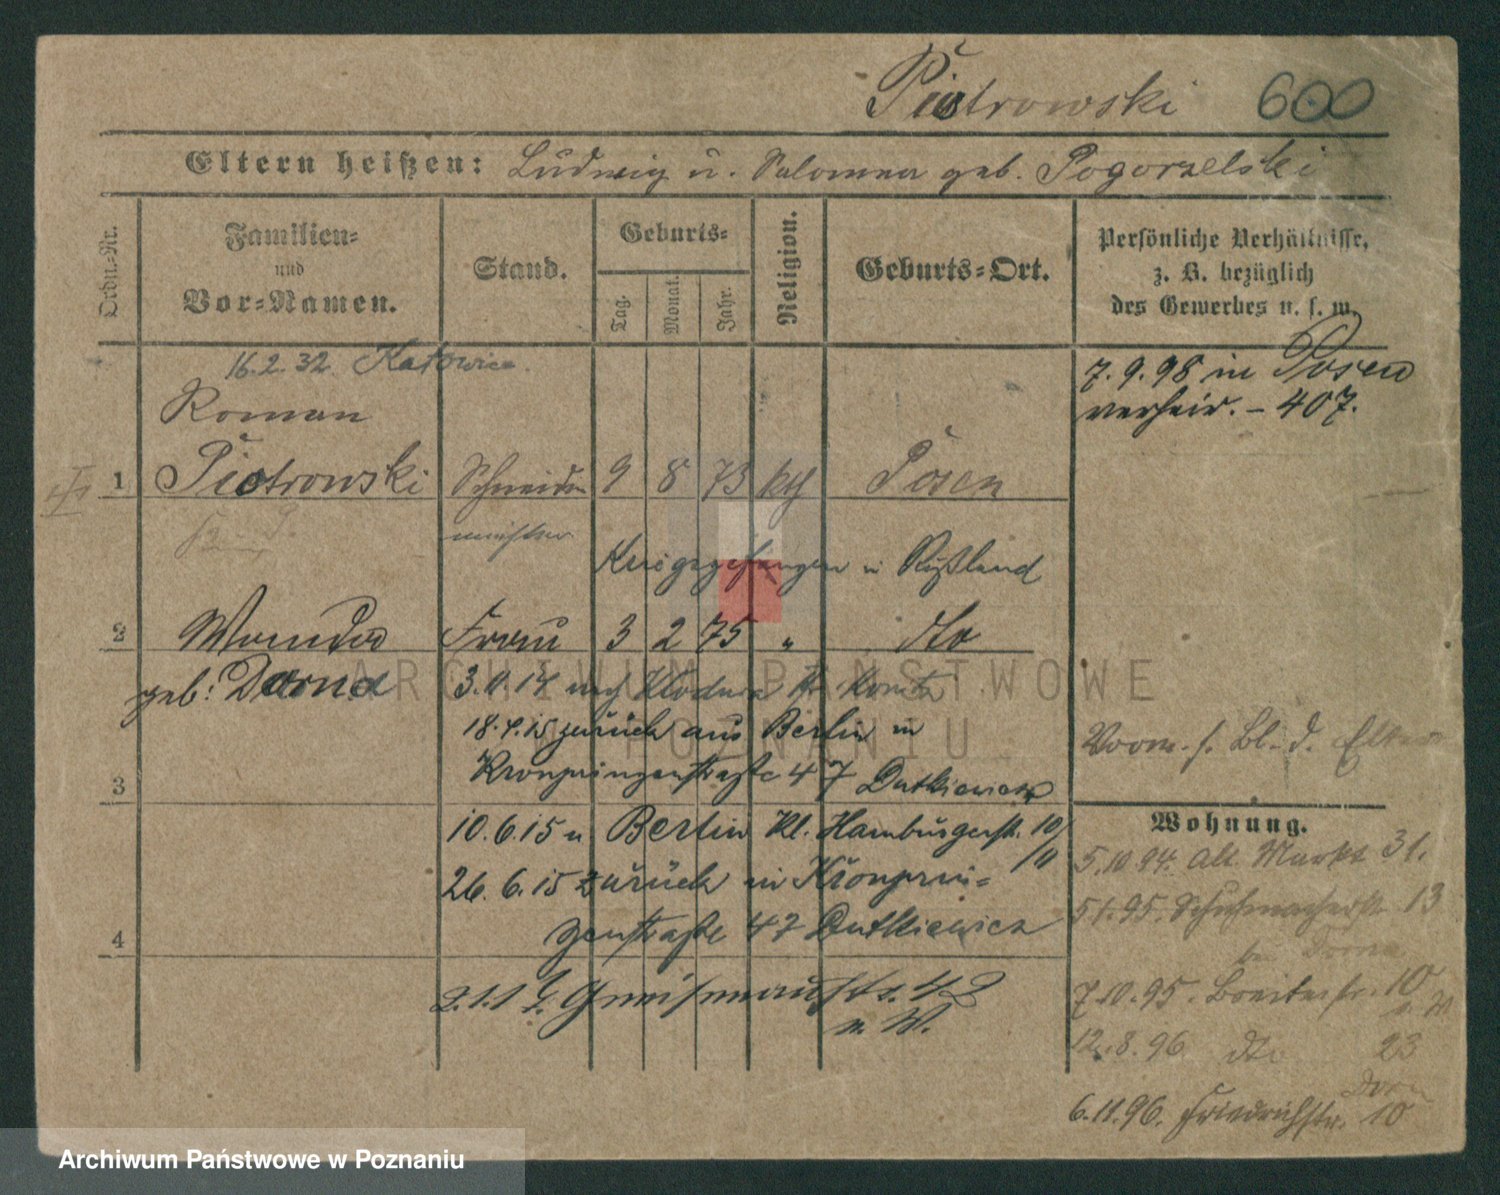 Piotrowski 600
Eltern heißen: Ludwig u. Salomea geb. Pogorzelski
Ordn.-Nr.
Familien-
und
Vor-Namen.
Stand.
Geburts-
Tag.
Monat.
Jahr.
Religion.
Geburts-Ort.
Persönliche Verhältnisse,
z. B. bezüglich
des Gewerbes u. s. w.
16.2.32 Katowice.
7.9.98 in Posen
verheir. - 407.
Roman
1 Piotrowski Schneider 9 8 73 kth Posen
meister
Kriegsgefangen in Rußland
2 Wanda Frau 3 2 75 " dto
geb. Dorna
3.11.14 nach Kr. Konitz
18.4.15 zurück aus Berlin in
Kronprinzenstraße 47 Dutkiewicz
3
Vorm. s. Bl. d. Eltern
10.6.15 n Berlin Kl. Hamburgerstr. 10/11
26.6.15 zurück in Kronprin-
zenstraße 47 Dutkiewicz
4
2.1.17. Gneisenaustr. 42
n. W.
Wohnung.
5.10.94. Alt. Markt 31.
5.1.95. Schuhmacherstr. 13
bei Dorna
7.10.95. Breitestr. 10
n. W
12.8.96 dto 23
Dorn
6.11.96. Friedrichstr. 10
ARCHIWUM PAŃSTWOWE
POZNANIU
Archiwum Państwowe w Poznaniu